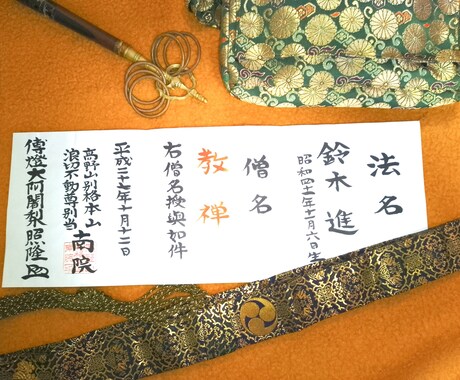 法名
鈴木進
昭和四十一年十一月六日生
僧名
教禅
右僧名授與如件
平成二十七年十月十二日
高野山別格本山
浪切不動尊別当
南院
傳燈大阿闍梨照隆